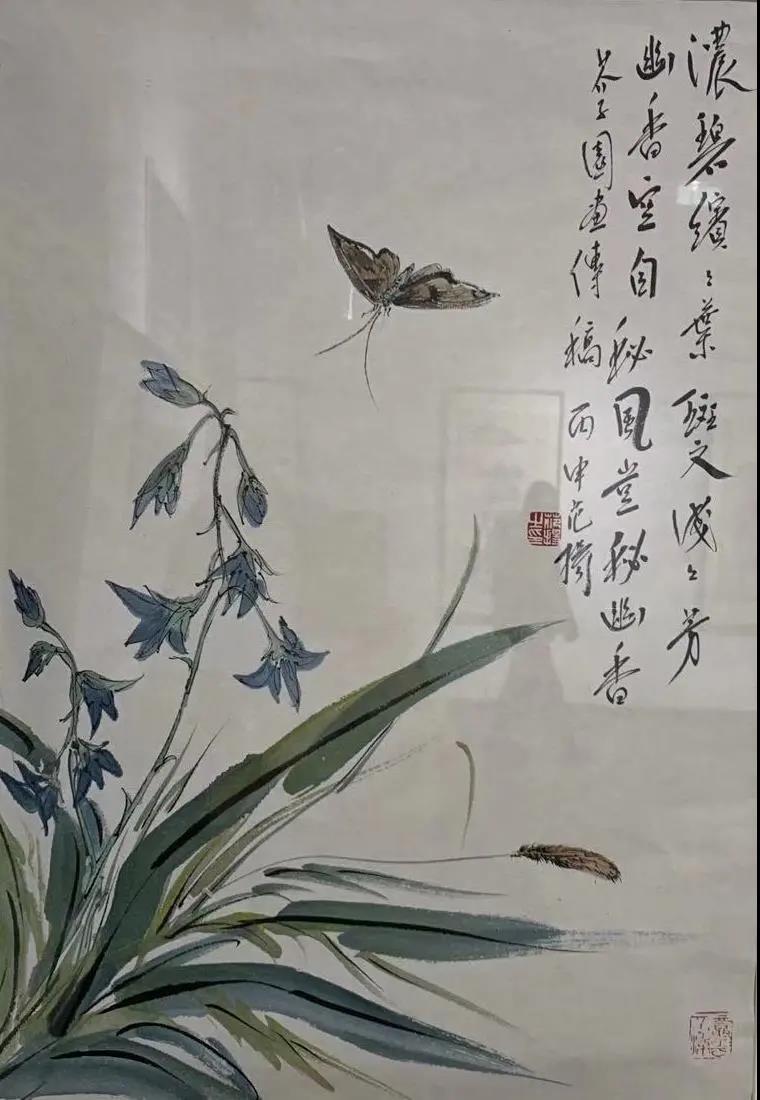 濃碧繽々葉斑文淺々芳
幽香空自秘風豈秘幽香
芥子園畫傳稿 丙申范揚